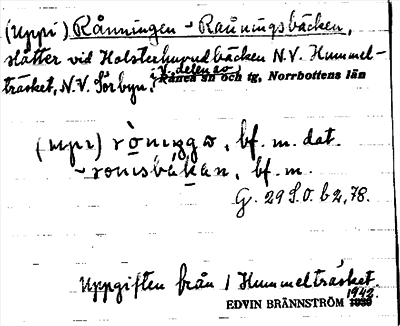 (Uppi) Rånningen - Rauningsbäcken,
slåtter vid Holsterhuvudbäcken N.V. Hummel-
träsket, N.V. Sörbyn, i V. delen av
Råneå sn och tg, Norrbottens län
(upi) róniŋgɷ, bf. m. dat.
- ronisbákan, bf. m.
G. 29 S.O. b 2, 78.
Uppgiften från 1 Hummelträsket.
EDVIN BRÄNNSTRÖM 1942.